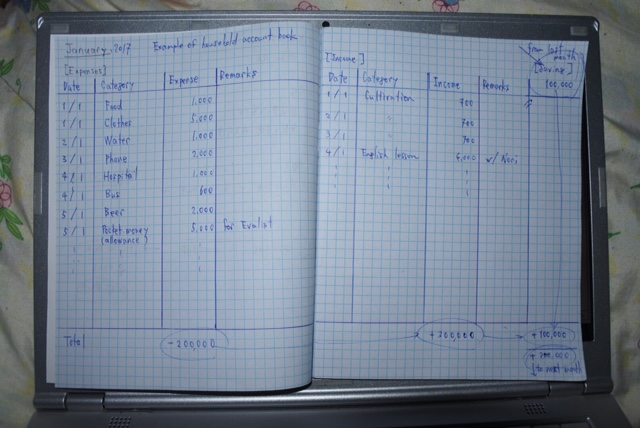 January, 2017 Example of household account book
[Expenses]
Date Category Expense Remarks
1/1 Food 1,000
1/1 Clothes 5,000
2/1 Water 1,000
3/1 Phone 2,000
4/1 Hospital 1,000
4/1 Bus 600
5/1 Beer 2,000
5/1 Pocket money 5,000 for
(allowance)
Total -200,000
from last
month
[Income] [Savings]
Date Category Income Remarks 100,000
1/1 Cultivation 700
2/1 " 700
3/1 " 700
4/1 English lesson w/
+300,000 +100,000
+200,000
to next month